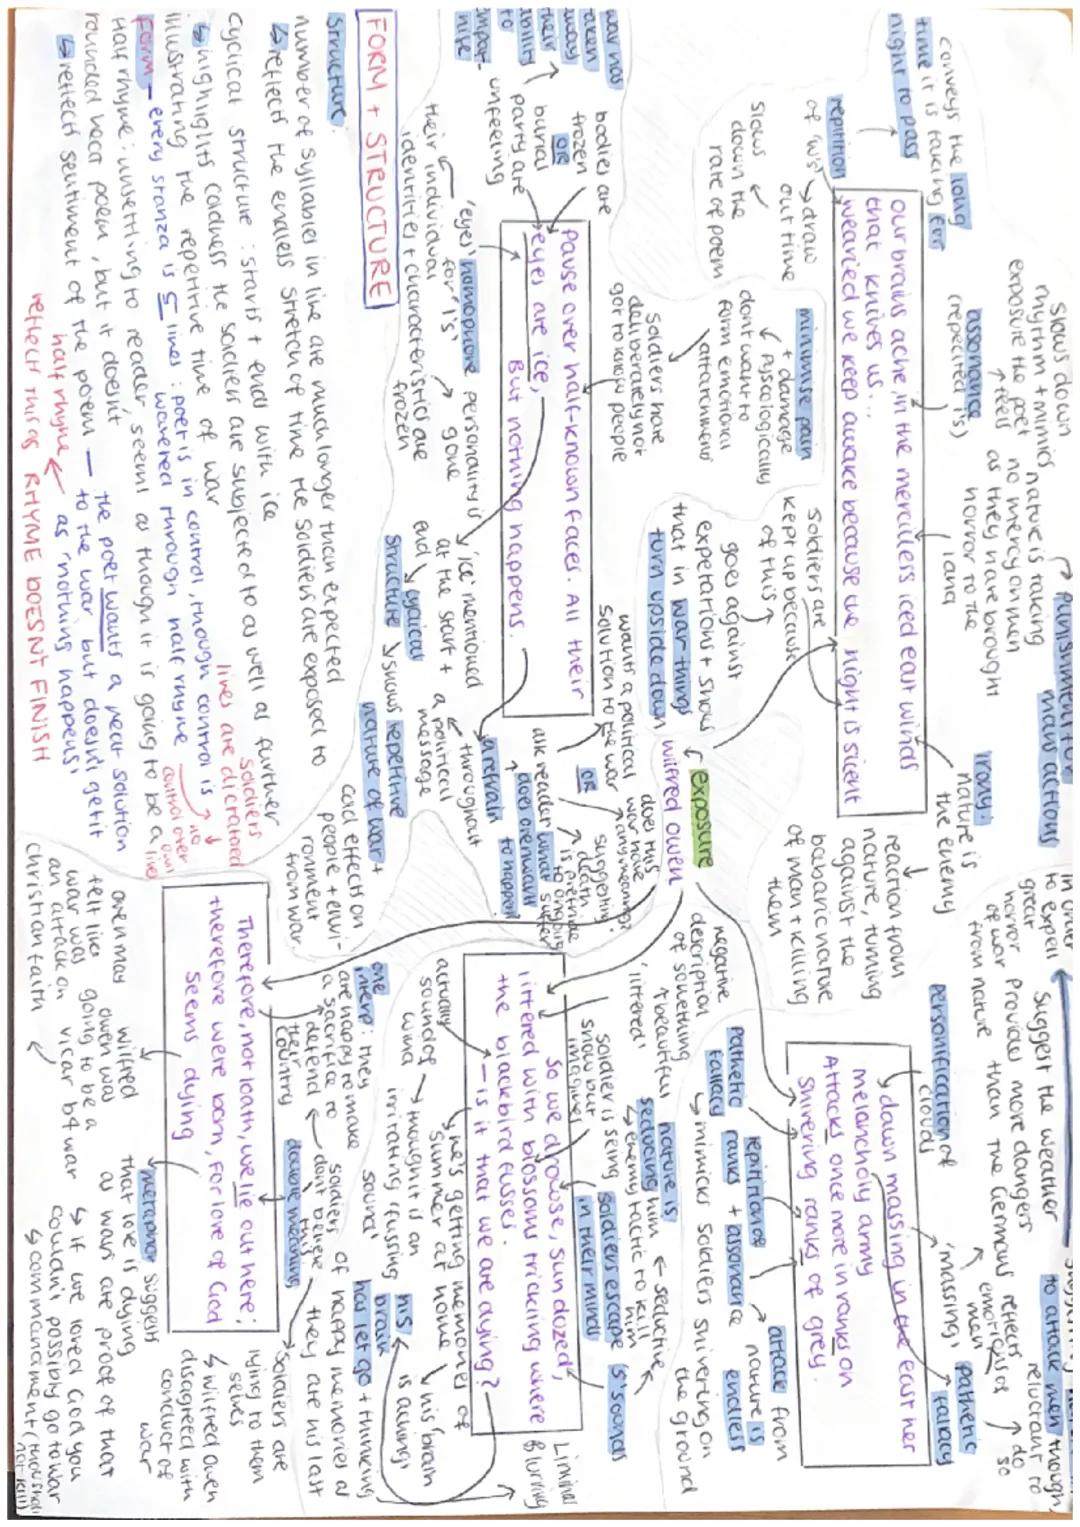 exposure
wilfred owen
Slows down
rhythm + mimics
exposure the poet
feels
assonance
(repeated i's)
conveys the long
time it is taking for
night to pass
repitition
of 'w's'
draw
out time
slows
down the
rate of poem
our brains ache, in the merciless iced east winds
that knives us...
wearied we keep awake because the night is silent
punishment for
man's actions
nature is taking
no mercy on men
as they have brought
horror to the
land
irony:
nature is
the enemy
reaction from
nature, turning
against the
babaric nature
of man + killing
them
soldiers are
kept up because
of this
goes against
expetations + shows
that in war things
turn upside down
minimise pain
+ damage
pysologically
dont want to
form emotional
attatchment
soldiers have
deliberately not
got to know people
Pause over half-known faces. All their
eyes are ice,
But nothing happens.
bodies are
frozen
OR
burial
party are
unfeeling
war has
taken
away
their
ability
to
'eyes' homophone
for 'I's'
their individual
identities + characteristics are
frozen
personality is
gone
'ice' mentioned
at the start +
end
cyclical
structure
shows repetitive
nature of war +
cold effects on
people + envi-
ronment
from war.
a refrain
throughout
a political
message
wants a political
solution to the war
OR
ask reader what
does owen want
to happen
does this
war have
any meaning?
suggesting
death
FORM + STRUCTURE
Structure:
number of syllables in line are much longer than expected
reflects the endless stretch of time the soldiers are exposed to
cyclical structure : starts + ends with ice
highlights coldness the soldiers are subjected to as well as further
illustrating the repetitive time of war
Form - every stanza is 5 lines : poet is in control, though control is
wavered through half rhyme
no
control over
own
live
soldiers
lives are dictated
Half rhyme: unsettling to reader, seems as though it is going to be a
rounded neat poem, but it doesnt
the poet wants a neat solution
to the war but doesn't get it
reflects sentiment of the poem
as 'nothing happens'
half rhyme
reflects this as RHYME DOESN'T FINISH
in order
to expell
great
horror
of war
from nature
suggest the weather
provides more dangers
than the Germans
to attack men though
reluctant to
do so
reflects
emotions of
men
personification of
clouds
'massing'
pathetic
fallacy
dawn massing in the east her
melancholy army
Attacks once more in ranks on
shivering ranks of grey.
negative
description
of something
beautiful
pathetic
fallacy
repitition of
ranks + assonance
mimicks soldiers shivering on
the ground
attack from
nature is
endless
'littered'
nature is
seducing him
enemy tactic to kill
him
seductive
's' sounds
soldier is seeing
snow but
imagines
soldiers escape
in their minds
So we drowse, sun dozed,
littered with blossoms trickling where
the blackbird fusses.
– is it that we are dying?
Liminal
blurring
actually
sound of
wind
thought is an
irritating (fussing)
sound
he's getting memories of
summer at home
his brain
is aching
his
brain
has let go + thinking
of happy memories as
they are his last
one
intere: they
are happy to make
a sacrifice to
defend
their
country
soldiers
don't believe
this
double meaning
soldiers are
lying to them
selves
wilfred owen
disagreed with
conduct of
war
Therefore, not loath, we lie out here;
therefore were born, For love of God
seems dying
wilfred
owen was
going to be a
vicar b4 war
owen may
felt like
war was
an attack on
christian faith
metaphor suggests
that love is dying
as wars are proof of that
if we loved God you
couldn't possibly go to war
commandment (thou shall
not kill)